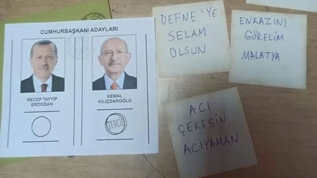 CUMHURBAŞKANI ADAYLARI
RECEP TAYYİP
ERDOĞAN
KEMAL
KILIÇDAROĞLU
TERCİH
DEFNE'YE
SELAM
OLSUN
ENKAZINI
GÖRELİM
MALATYA
ACI
ÇEKESİN
ACIYAMAN